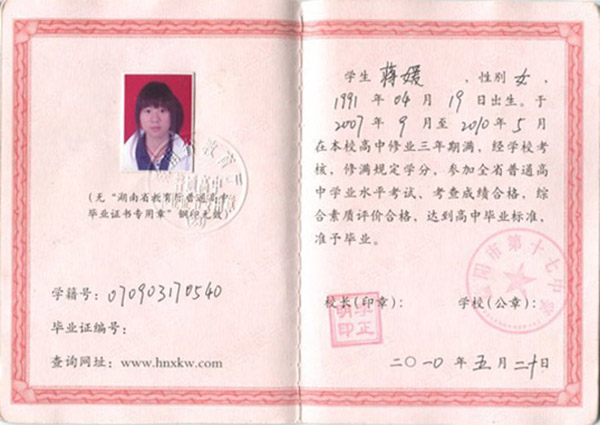 (无“湖南省教育厅普通高中
毕业证书专用章”钢印无效)
学籍号：070903170540
毕业证编号：
查询网址：www.hnxkw.com
学生 蒋媛 ，性别 女 ，
1991 年 04 月 19 日出生。于
2007 年 9 月 至 2010 年 5 月
在本校高中修业三年期满，经学校考
核，修满规定学分，参加全省普通高
中学业水平考试、考查成绩合格，综
合素质评价合格，达到高中毕业标准，
准予毕业。
阳市第十七中学
校长(印章)： 学校(公章)：
李正明印
二〇一〇 年 五 月 二十 日